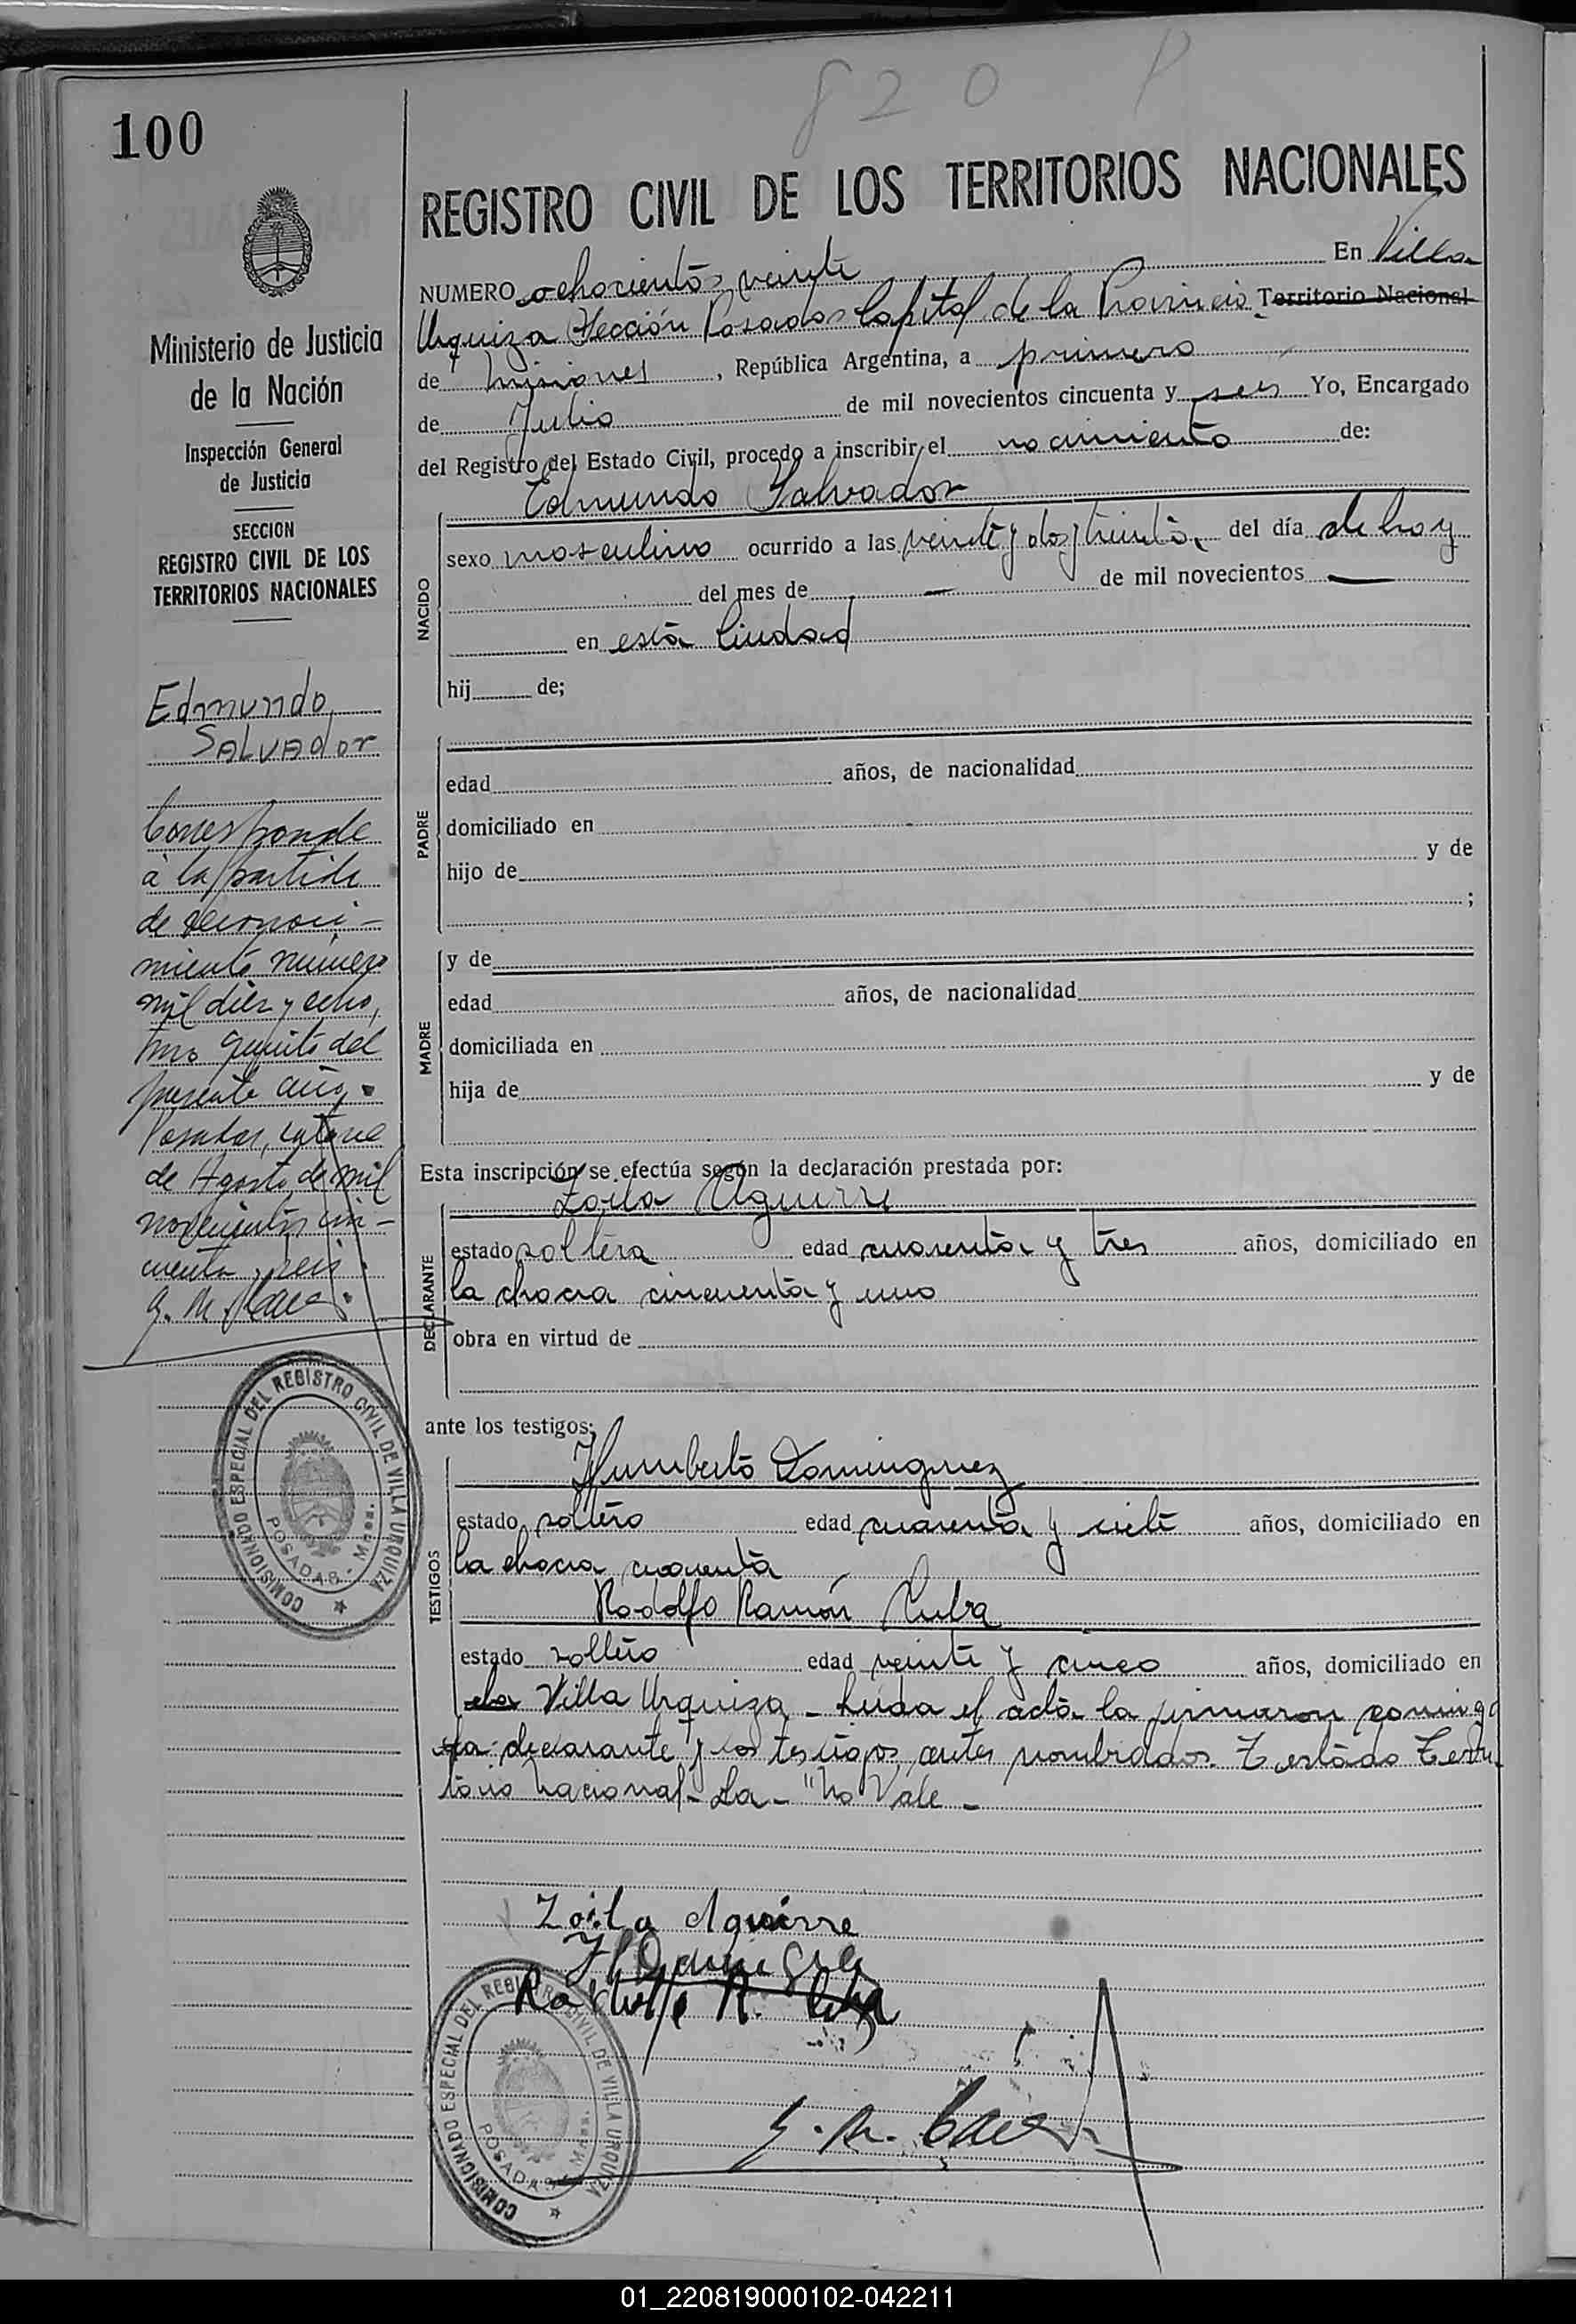 820 P
100
REGISTRO CIVIL DE LOS TERRITORIOS NACIONALES
NUMERO ochocientos veinte En Villa
Urquiza Sección Posadas Capital de la Provincia Territorio Nacional
de Misiones, República Argentina, a primero
de Julio de mil novecientos cincuenta y seis Yo, Encargado
del Registro del Estado Civil, procedo a inscribir el nacimiento de:
Edmundo Salvador
NACIDO
sexo masculino ocurrido a las veinte y dos y treinta del día de hoy
del mes de — de mil novecientos —
en esta Ciudad
hij de;
PADRE
edad años, de nacionalidad
domiciliado en
hijo de y de
;
MADRE
y de
edad años, de nacionalidad
domiciliada en
hija de y de
Esta inscripción se efectúa según la declaración prestada por:
Zoila Aguirre
DECLARANTE
estado soltera edad cuarenta y tres años, domiciliado en
la chacra cincuenta y uno
obra en virtud de
ante los testigos:
Humberto Dominguez
TESTIGOS
estado soltero edad cuarenta y siete años, domiciliado en
la chacra cuarenta
Rodolfo Ramón
estado soltero edad veinte y cinco años, domiciliado en
Villa Urquiza - Leida el acta la firmaron conmigo
la declarante y los testigos antes nombrados. Testado Terri
torio Nacional - La - "No Vale -
Zoila Aguirre
Rodolfo R.
Ministerio de Justicia
de la Nación
Inspección General
de Justicia
SECCION
REGISTRO CIVIL DE LOS
TERRITORIOS NACIONALES
Edmundo
SALVADOR
Corresponde
a la partida
de reconoci-
miento número
mil diez y ocho,
tomo quinto del
presente año.
Posadas, catorce
de Agosto de mil
novecientos cin-
cuenta y seis.
COMISIONADO ESPECIAL DEL REGISTRO CIVIL DE VILLA URQUIZA
POSADAS - Mnes.
COMISIONADO ESPECIAL DEL REGISTRO CIVIL DE VILLA URQUIZA
POSADAS - Mnes.
01_220819000102-042211